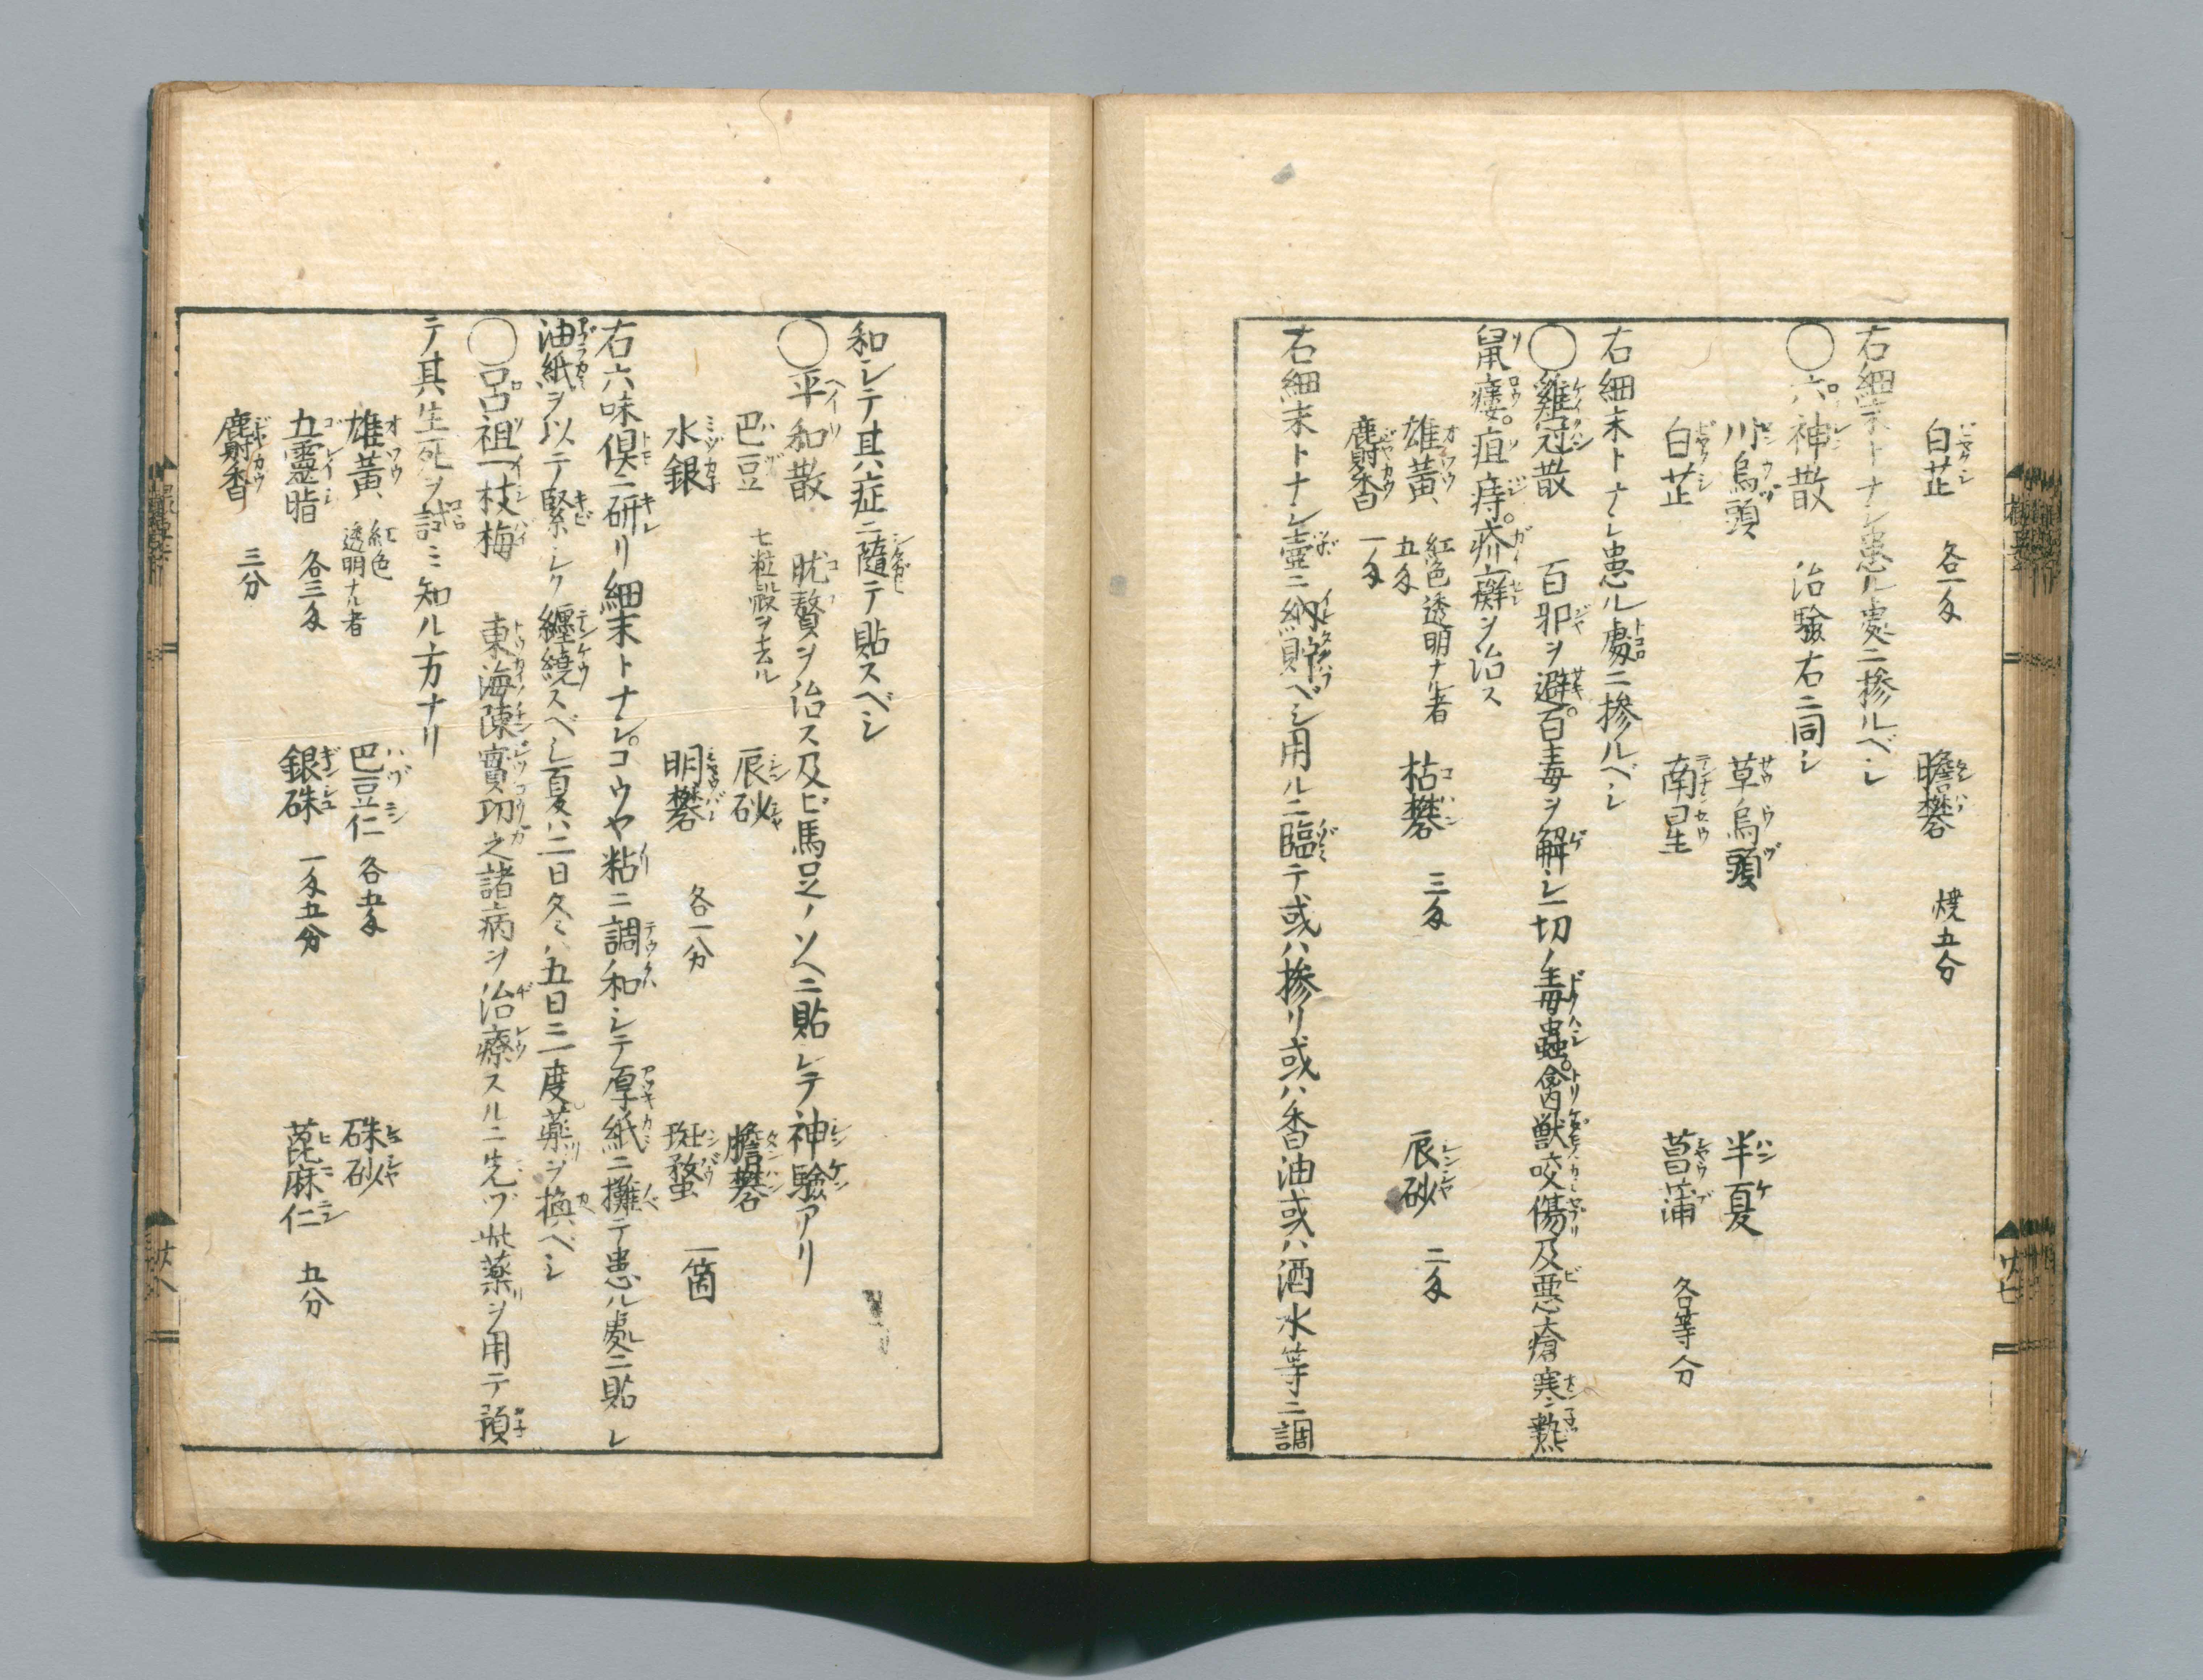 白芷 各一匁 膽礬 焼五分
右細末トナシ患ル處ニ摻ルベシ
◯六神散 治驗右ニ同シ
川烏頭 草烏頭 半夏
白芷 南星 菖蒲 各等分
右細末トナシ患ル處ニ摻ルベシ
◯雞冠散 百邪ヲ避。百毒ヲ解シ一切ノ毒蟲。禽獸咬傷及悪瘡寒熱
鼠瘻。疽痔。疥癬ヲ治ス
雄黃、紅色透明ナル者五匁 枯礬 三匁 辰砂 二匁
麝香 一匁
右細末トナシ壷ニ納貯ベシ用ルニ臨テ或ハ摻リ或ハ香油或ハ酒水等ニ調
和シテ其症ニ隨テ貼スベシ
◯平和散 肬贅ヲ治ス及ビ馬足ノソヘニ貼シテ神驗アリ
巴豆 七粒殼ヲ去ル 辰砂 膽礬
水銀 明礬 各一分 斑蝥 一箇
右六味倶ニ研リ細末トナシ。コウヤ粘ニ調和シテ厚紙ニ攤テ患ル處ニ貼シ
油紙ヲ以テ緊シク纏繞スベシ夏ハ二日冬ハ五日ニ一度藥ヲ換ベシ
◯呂祖一枝梅 東海陳實功之諸病ヲ治療スルニ先ヅ此薬ヲ用テ預
テ其生死ヲ試ミ知ル方ナリ
雄黃、紅色透明ナル者 巴豆仁 各五匁 硃砂
五靈脂 各三匁 銀硃 一匁五分 蓖麻仁 五分
麝香 三分
廿七
廿八